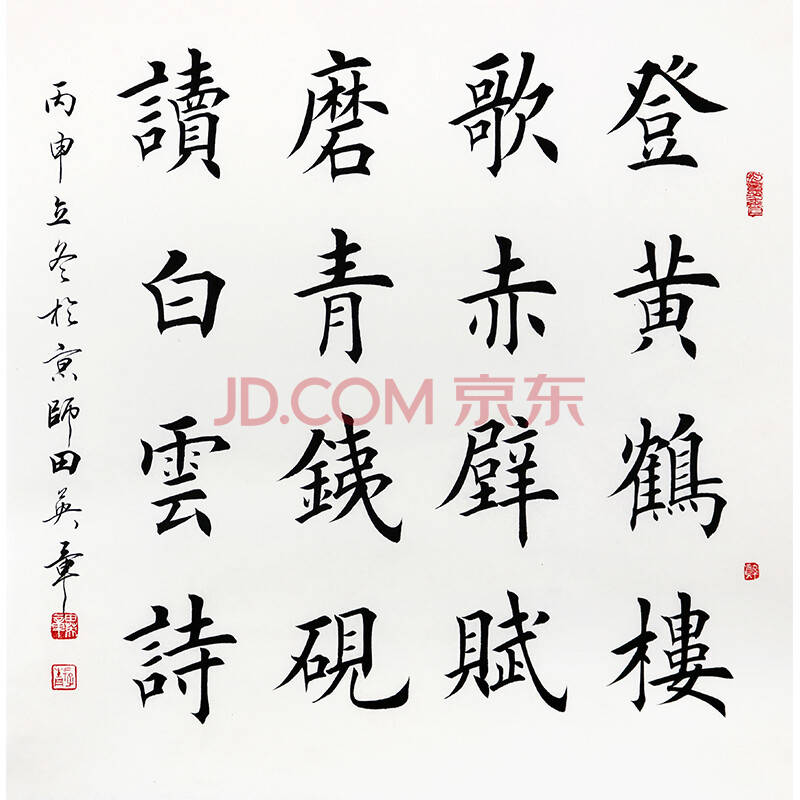 登黄鶴樓
歌赤壁賦
磨青銕硯
讀白雲詩
丙申立冬於京師田英章
JD.COM 京东